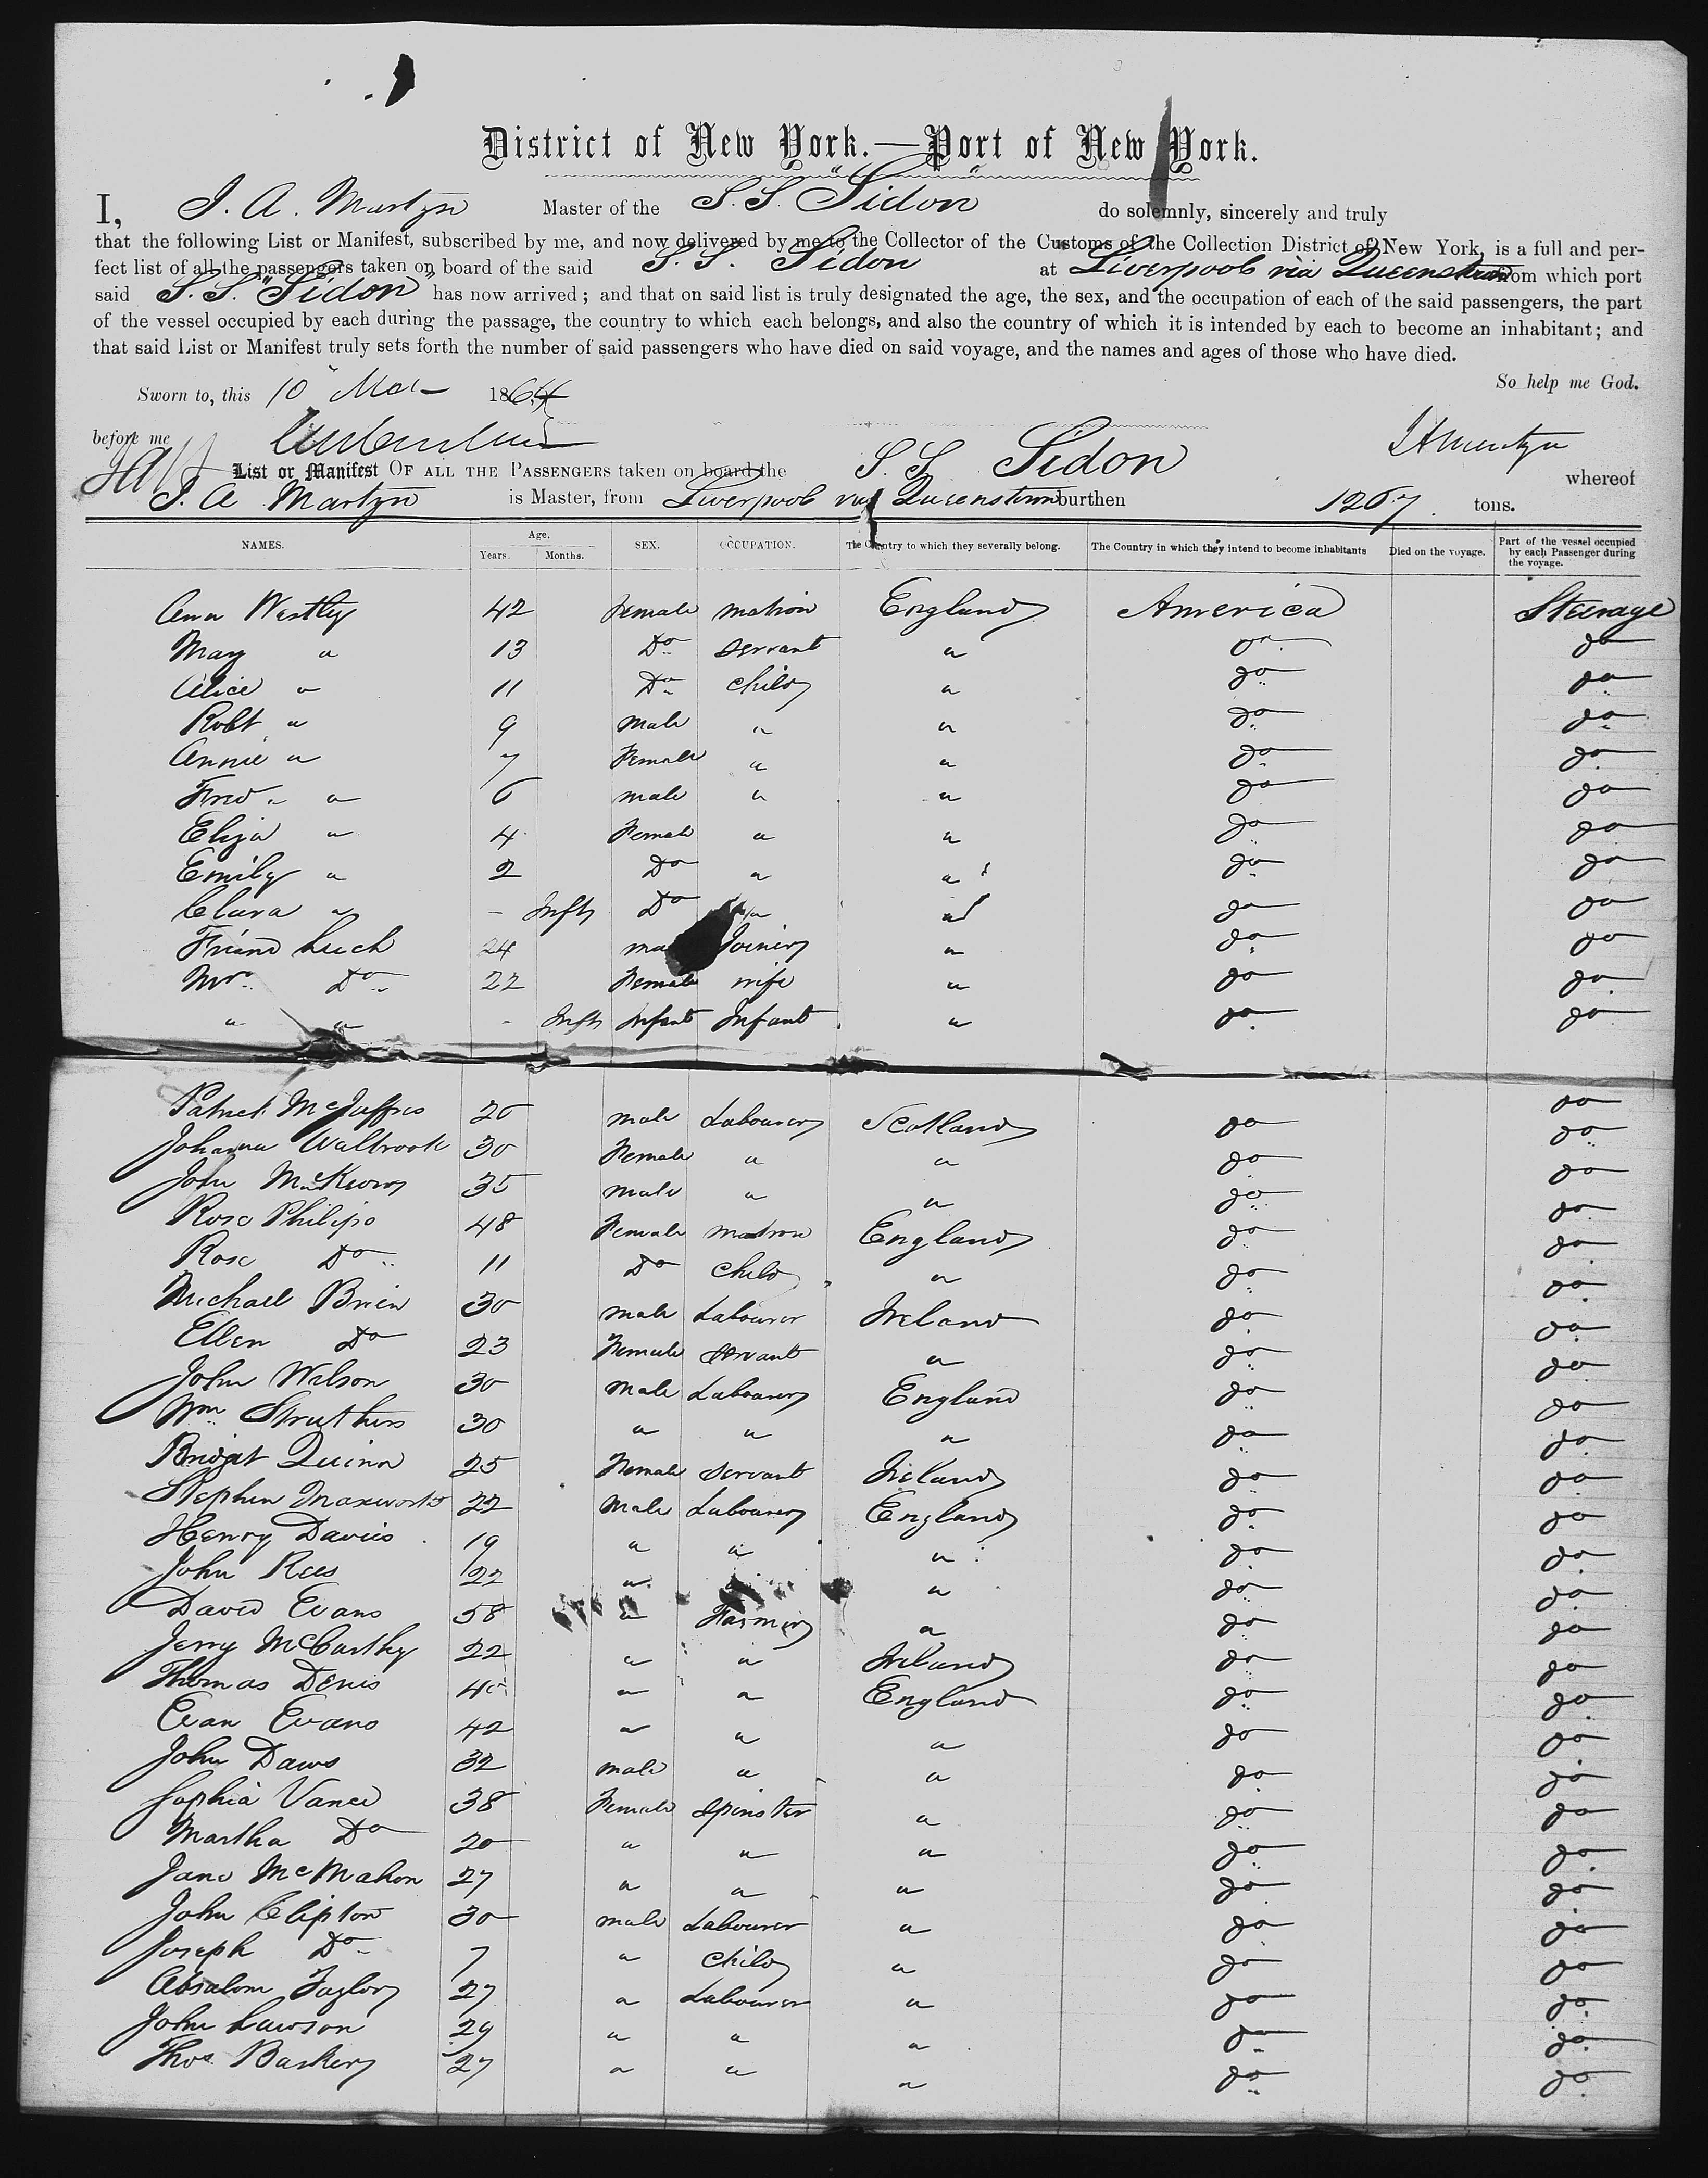 District of New York.—Port of New York.
I, J. A. Martyn Master of the S.S. Sidon do solemnly, sincerely and truly
that the following List or Manifest, subscribed by me, and now delivered by me to the Collector of the Customs of the Collection District of New York, is a full and per-
fect list of all the passengers taken on board of the said S.S. Sidon at Liverpool via Queenstown from which port
said S.S. "Sidon" has now arrived; and that on said list is truly designated the age, the sex, and the occupation of each of the said passengers, the part
of the vessel occupied by each during the passage, the country to which each belongs, and also the country of which it is intended by each to become an inhabitant; and
that said List or Manifest truly sets forth the number of said passengers who have died on said voyage, and the names and ages of those who have died.
So help me God.
Sworn to, this 10 Mar 1864
before me
J A Martyn
List or Manifest OF ALL THE PASSENGERS taken on board the S.S. Sidon whereof
J. A Martyn is Master, from Liverpool via Queenstown burthen 1267 tons.
NAMES. Age. Years. Months. SEX. OCCUPATION. The Country to which they severally belong. The Country in which they intend to become inhabitants Died on the voyage. Part of the vessel occupied by each Passenger during the voyage.
Ann Westley 42 Female matron England America Steerage
May " 13 Do servant " do do
Alice " 11 Do child " do do
Robt " 9 male " " do do
Annie " 7 Female " " do do
Fred " 6 male " " do do
Eliza " 4 Female " " do do
Emily " 2 Do " " do do
Clara " - Inft Do " " do do
Friend Luch 24 male Joiner " do do
Mrs Do 22 Female wife " do do
" " - Inft Infant Infant " do do
Patrick McJaffres 20 male Labourer Scotland do do
Johanna Walbrook 30 Female " " do do
John McKeown 35 male " " do do
Rose Philips 48 Female matron England do do
Rose Do 11 Do child " do do
Michael Brien 30 male Labourer Ireland do do
Ellen Do 23 Female servant " do do
John Wilson 30 male Labourer England do do
Wm Struthers 30 " " " do do
Bridget Quinn 25 Female servant Ireland do do
Stephen Maxworth 22 male Labourer England do do
Henry Davies 19 " " " do do
John Rees 22 " " " do do
David Evans 58 " Farmer " do do
Jerry McCarthy 22 " " Ireland do do
Thomas Denis 40 " " England do do
Evan Evans 42 " " " do do
John Daws 32 male " " do do
Sophia Vance 38 Female spinster " do do
Martha Do 20 " " " do do
Jane McMahon 27 " " " do do
John Clipton 30 male Labourer " do do
Joseph Do 7 " child " do do
Absalom Taylor 27 " Labourer " do do
John Lawson 29 " " " do do
Thos Barker 27 " " " do do